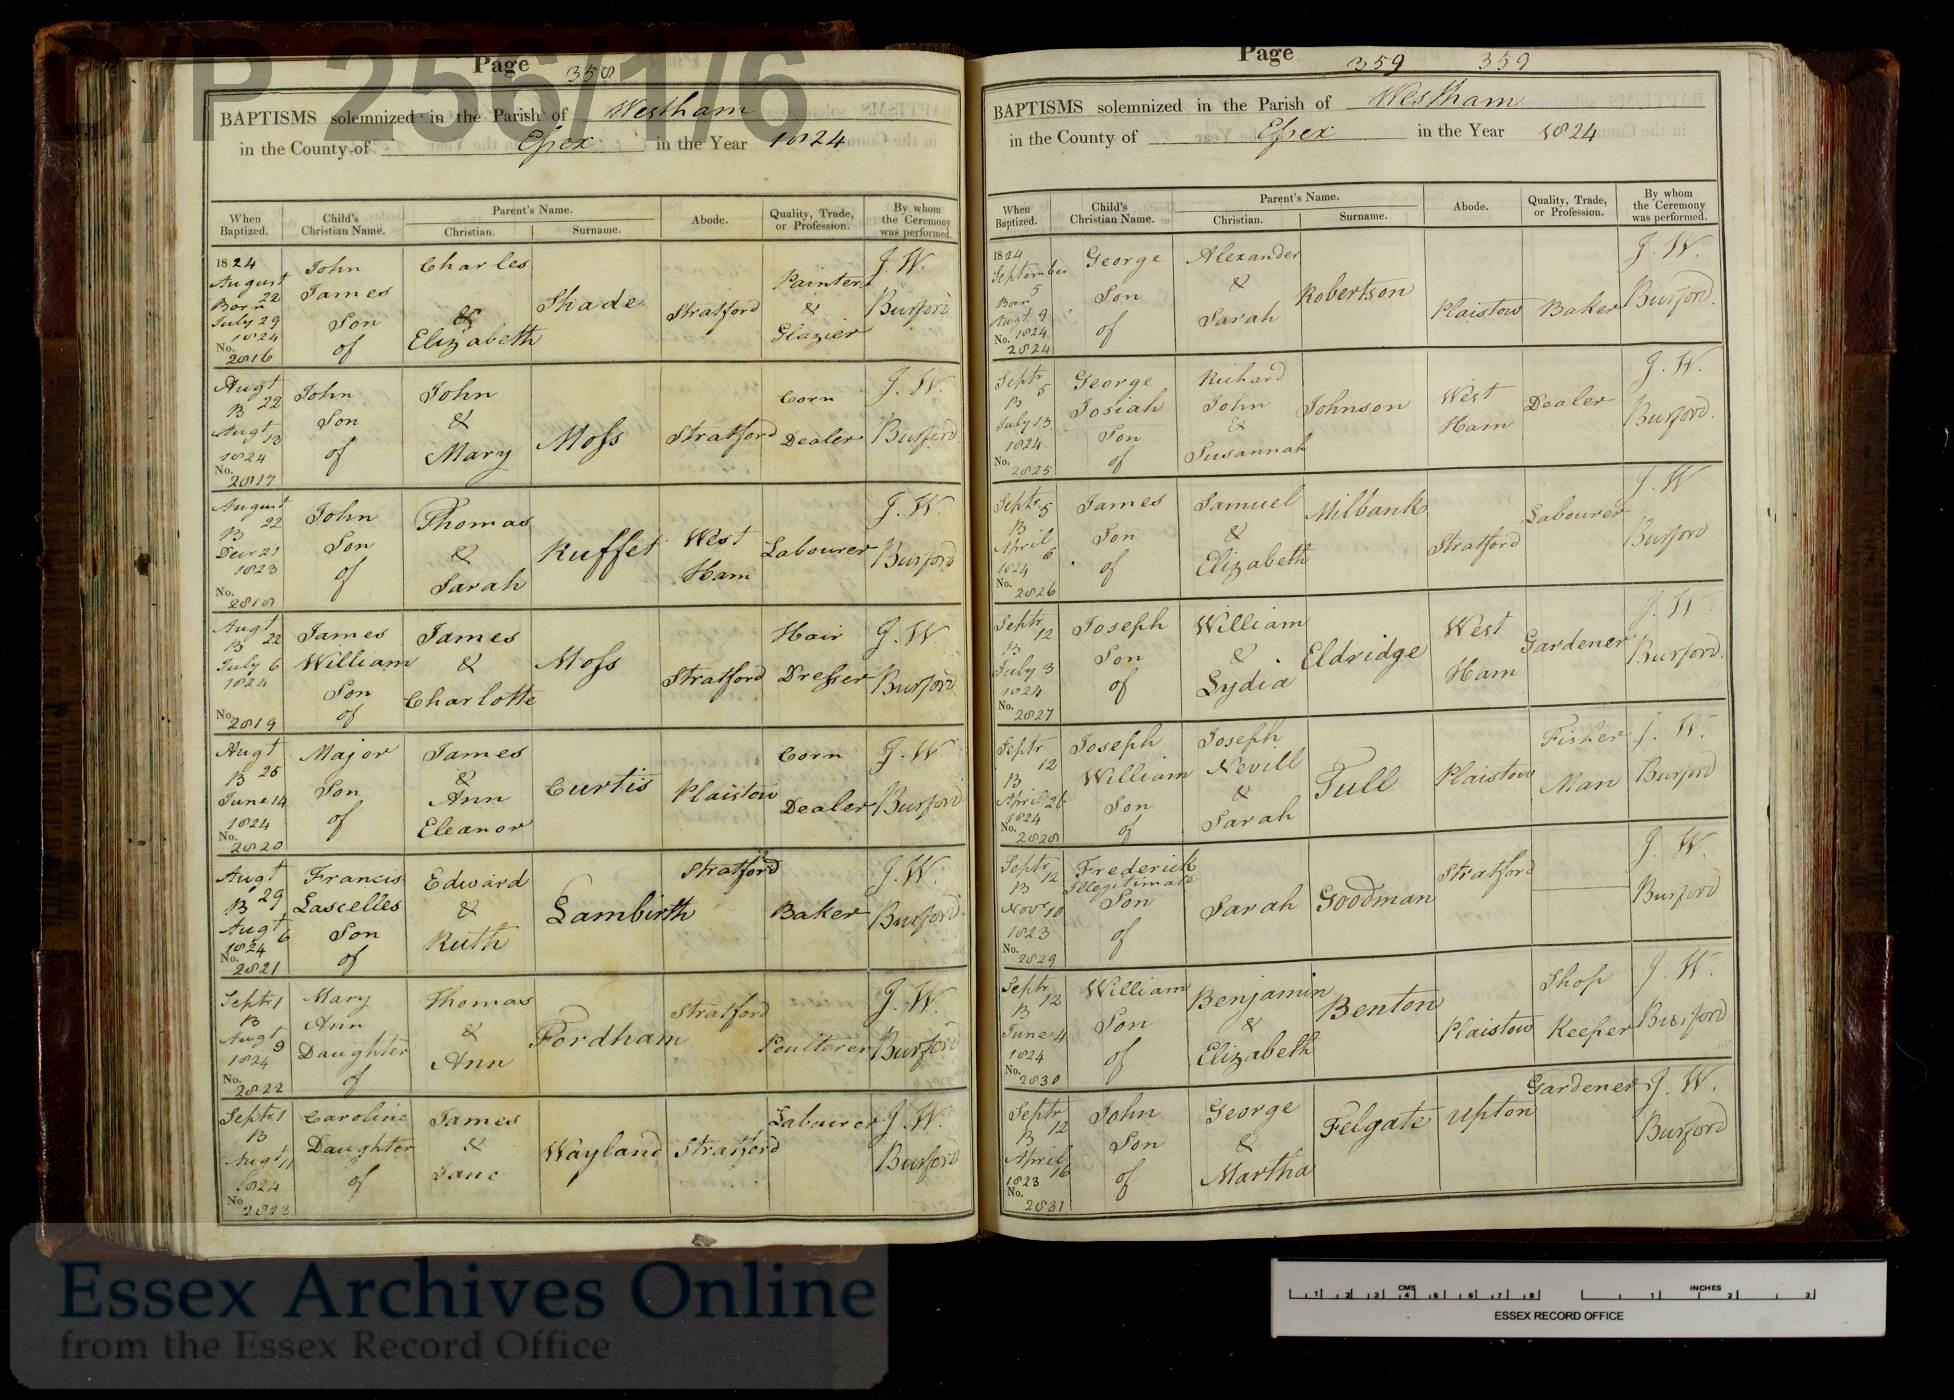 D/P 256/1/6
Page 358
BAPTISMS solemnized in the Parish of Westham
in the County of Essex in the Year 1824
When Baptized. Child's Christian Name. Parent's Name. Christian. Surname. Abode. Quality, Trade, or Profession. By whom the Ceremony was performed.
1824 August 22 Born July 29 1824 No. 2816 John James Son of Charles & Elizabeth Shade Stratford Painter & Glazier J. W. Burford
Augt 22 B Augt 13 1824 No. 2817 John Son of John & Mary Moss Stratford Corn Dealer J. W. Burford
August 22 B Decr 21 1823 No. 2818 John Son of Thomas & Sarah Ruffet West Ham Labourer J. W. Burford
Augt 22 B July 6 1824 No. 2819 James William Son of James & Charlotte Moss Stratford Hair Dresser J. W Burford
Augt 25 B June 14 1824 No. 2820 Major Son of James & Ann Eleanor Curtis Plaistow Corn Dealer J. W Burford
Augt 29 B Augt 6 1824 No. 2821 Francis Lascelles Son of Edward & Ruth Lambirth Stratford Baker J. W. Burford
Septr 1 B Augt 9 1824 No. 2822 Mary Ann Daughter of Thomas & Ann Fordham Stratford Poulterer J. W. Burford
Septr 1 B Augt 11 1824 No. 2823 Caroline Daughter of James & Jane Wayland Stratford Labourer J. W. Burford
Page 359 359
BAPTISMS solemnized in the Parish of Westham
in the County of Essex in the Year 1824
When Baptized. Child's Christian Name. Parent's Name. Christian. Surname. Abode. Quality, Trade, or Profession. By whom the Ceremony was performed.
1824 September 5 Born Augt 9 1824 No. 2824 George Son of Alexander & Sarah Robertson Plaistow Baker J. W. Burford
Septr 5 B July 13 1824 No. 2825 George Josiah Son of Richard John & Susannah Johnson West Ham Dealer J. W. Burford
Septr 5 B April 6 1824 No. 2826 James Son of Samuel & Elizabeth Milbank Stratford Labourer J. W Burford
Septr 12 B July 3 1824 No. 2827 Joseph Son of William & Lydia Eldridge West Ham Gardener J. W Burford
Septr 12 B April 26 1824 No. 2828 Joseph William Son of Joseph Nevill & Sarah Tull Plaistow Fisher Man J. W. Burford
Septr 12 B Novr 10 1823 No. 2829 Frederick Illegitimate Son of Sarah Goodman Stratford J. W. Burford
Septr 12 B June 4 1824 No. 2830 William Son of Benjamin & Elizabeth Benton Plaistow Shop Keeper J. W. Burford
Septr 12 B April 16 1823 No. 2831 John Son of George & Martha Felgate Upton Gardener J. W. Burford
Essex Archives Online
from the Essex Record Office
CMS 1 2 3 4 5 6 7 8 INCHES 1 2 3
ESSEX RECORD OFFICE